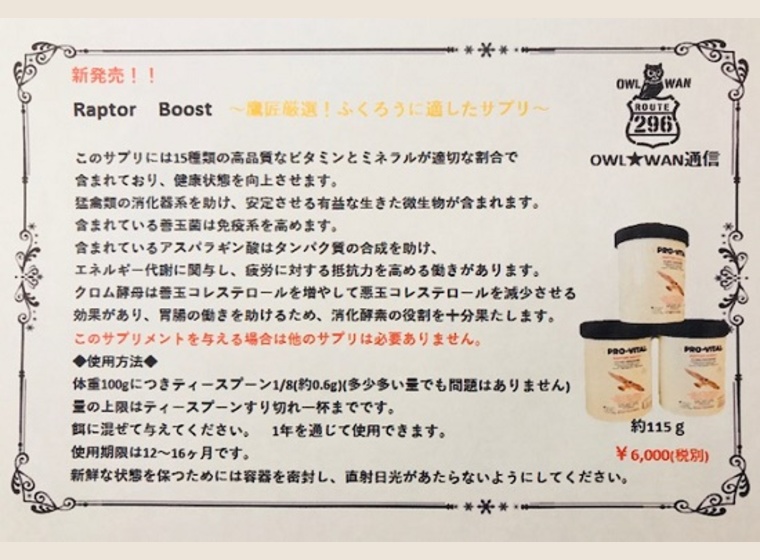 新発売！！
Raptor Boost ～鷹匠厳選！ふくろうに適したサプリ～
OWL WAN
ROUTE
296
OWL★WAN通信
このサプリには15種類の高品質なビタミンとミネラルが適切な割合で
含まれており、健康状態を向上させます。
猛禽類の消化器系を助け、安定させる有益な生きた微生物が含まれます。
含まれている善玉菌は免疫系を高めます。
含まれているアスパラギン酸はタンパク質の合成を助け、
エネルギー代謝に関与し、疲労に対する抵抗力を高める働きがあります。
クロム酵母は善玉コレステロールを増やして悪玉コレステロールを減少させる
効果があり、胃腸の働きを助けるため、消化酵素の役割を十分果たします。
このサプリメントを与える場合は他のサプリは必要ありません。
◆使用方法◆
体重100gにつきティースプーン1/8(約0.6g)(多少多い量でも問題はありません)
量の上限はティースプーンすり切れ一杯までです。
餌に混ぜて与えてください。 1年を通じて使用できます。
使用期限は12～16ヶ月です。
新鮮な状態を保つためには容器を密封し、直射日光があたらないようにしてください。
PRO-VITAL
PRO-VITAL
PRO-VITAL
約115ｇ
￥6,000(税別)